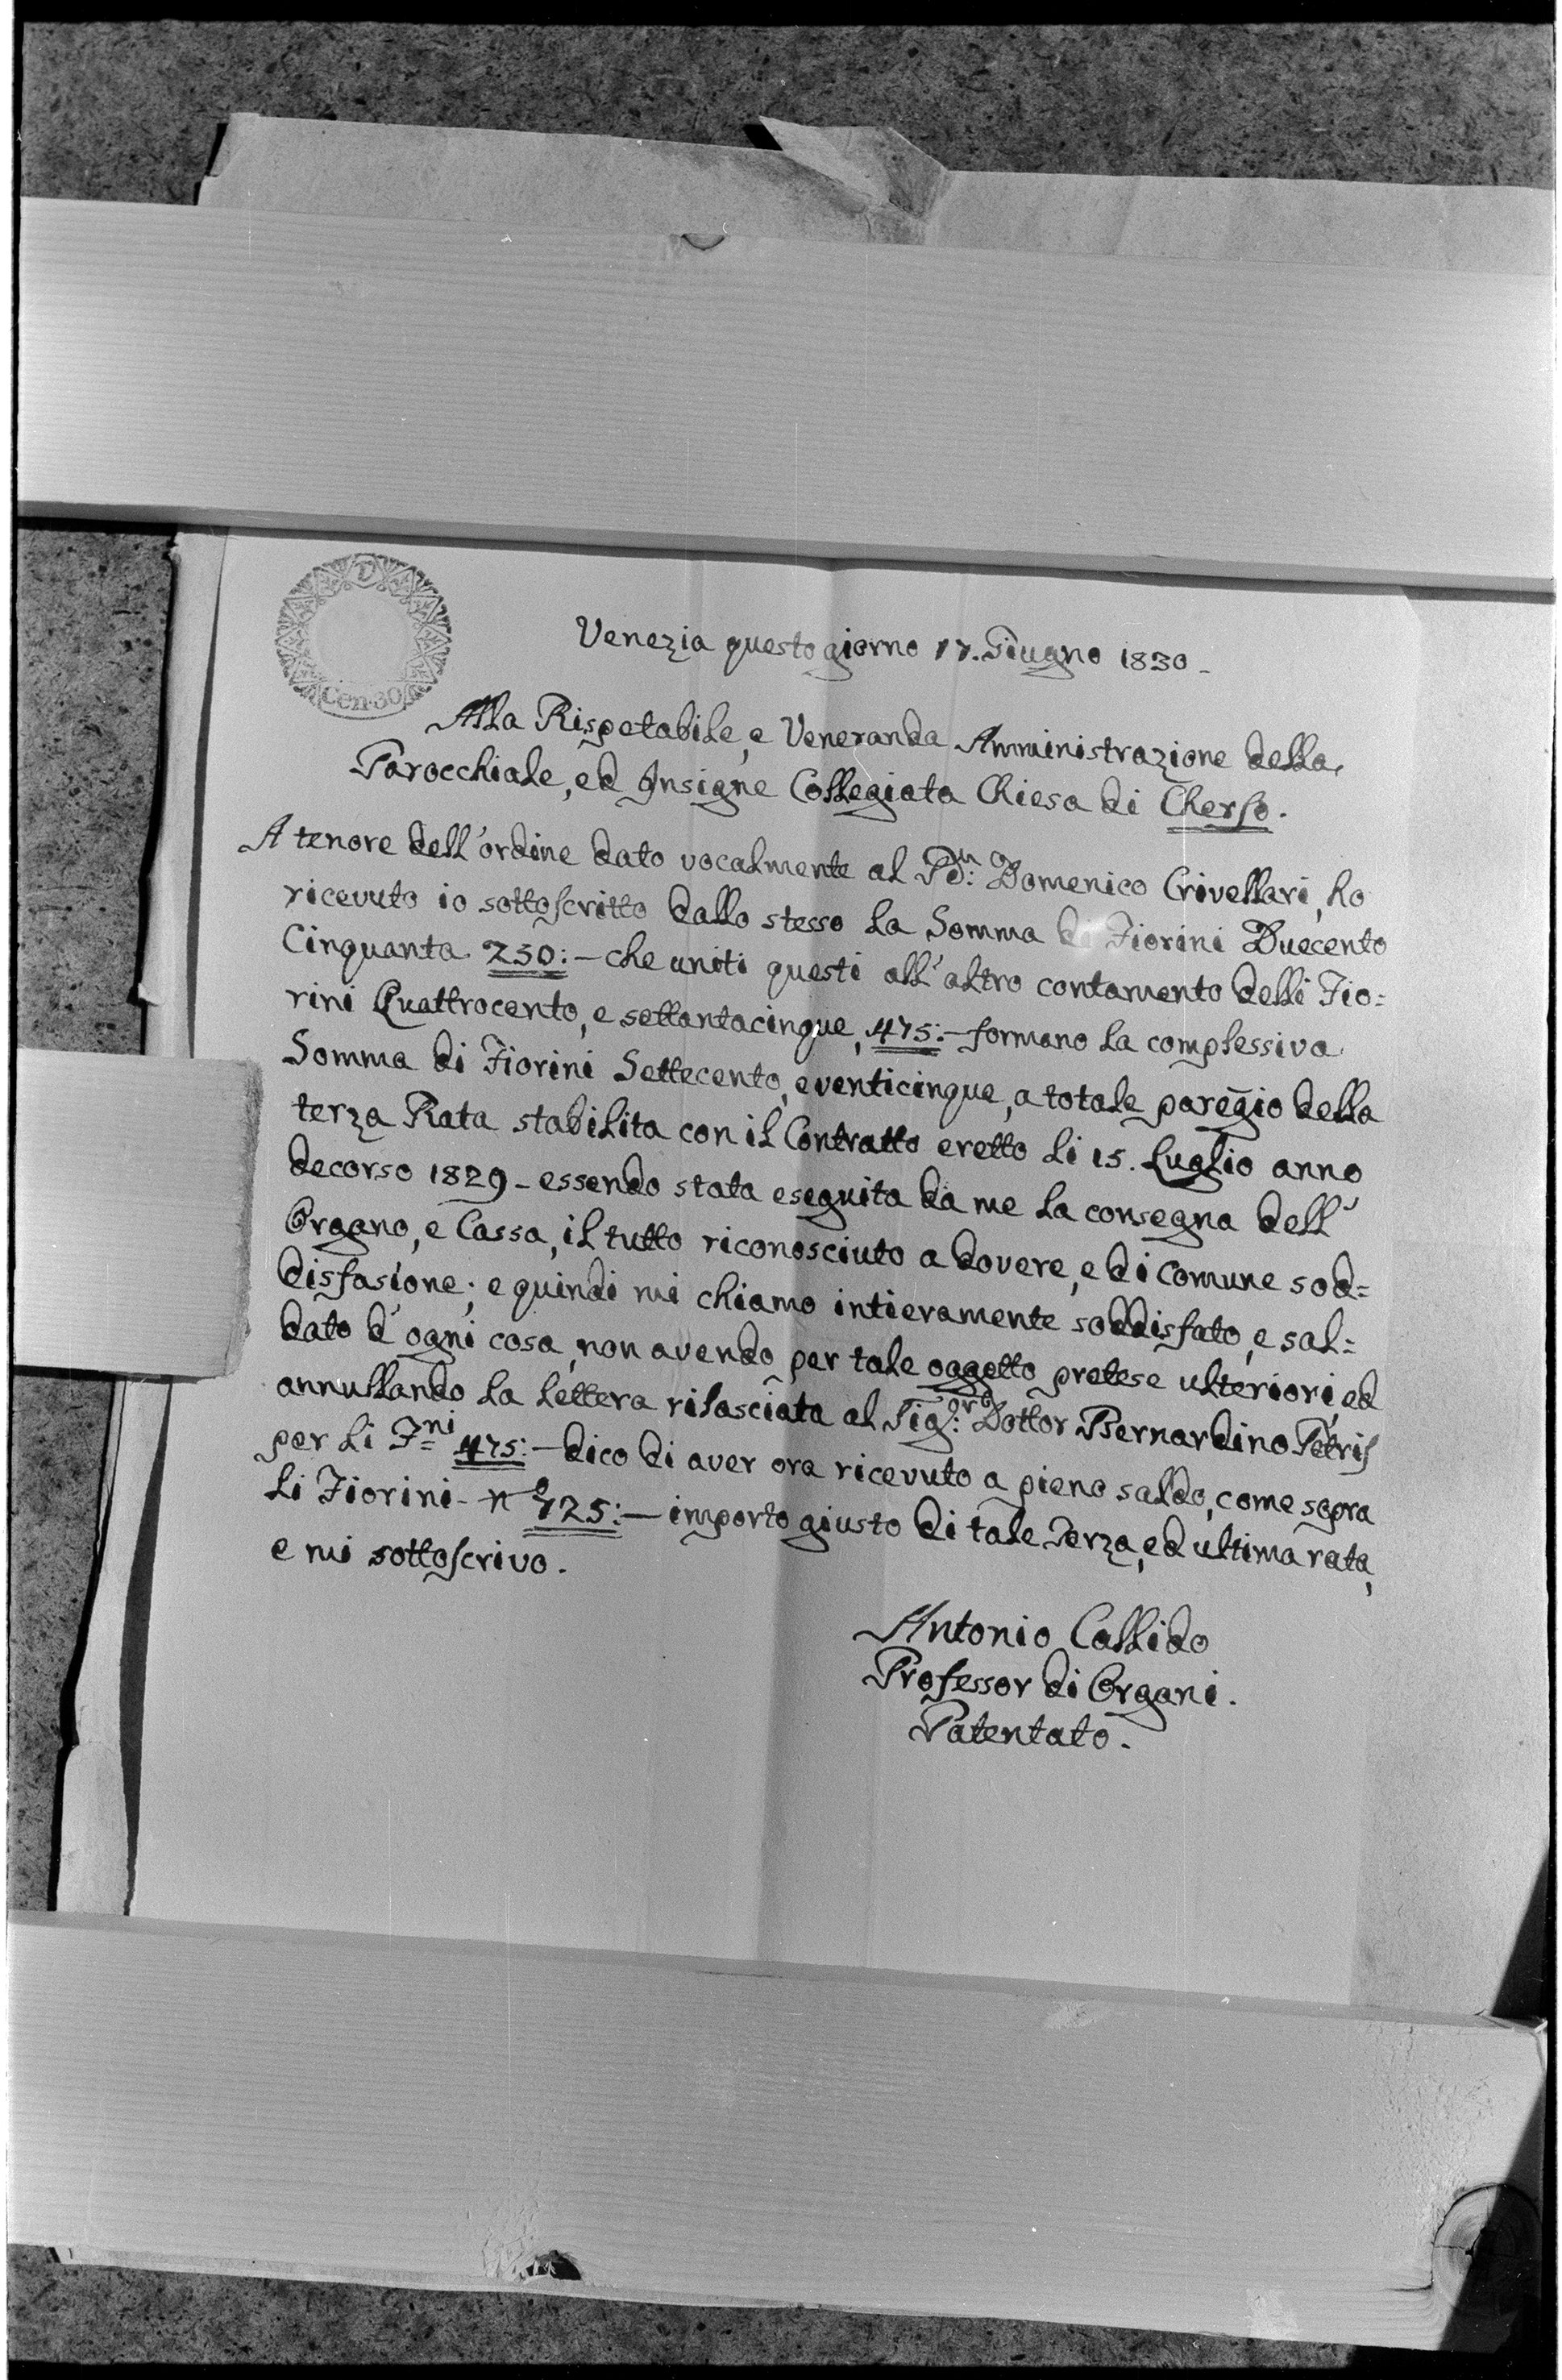 Cen. 30
Venezia questo giorno 17. Giugno 1830 -
Alla Rispetabile, e Veneranda Amministrazione della
Parocchiale, ed Insigne Collegiata Chiesa di Cherso.
A tenore dell'ordine dato vocalmente al Pdn: Domenico Crivellari, ho
ricevuto io sottoscritto dallo stesso la Somma di Fiorini Duecento
Cinquanta 250:- che uniti questi all'altro contamento delli Fio=
rini Quattrocento, e settantacinque, 475:- formano la complessiva
Somma di Fiorini Settecento, e venticinque, a totale paregio della
terza Rata stabilita con il Contratto eretto li 15. Luglio anno
decorso 1829 - essendo stata eseguita da me la consegna dell'
Organo, e Cassa, il tutto riconosciuto a dovere, e di comune sod=
disfasione; e quindi mi chiamo intieramente soddisfato, e sal=
dato d'ogni cosa, non avendo per tale oggetto pretese ulteriori, ed
annullando la lettera rilasciata al Sig:r Dottor Bernardino Petris
per li Fni 475:- dico di aver ora ricevuto a pieno saldo, come sopra
li Fiorini - no 725:- importo giusto di tale Terza, ed ultima rata,
e mi sottoscrivo.
Antonio Callido
Professor di Organi.
Patentato.